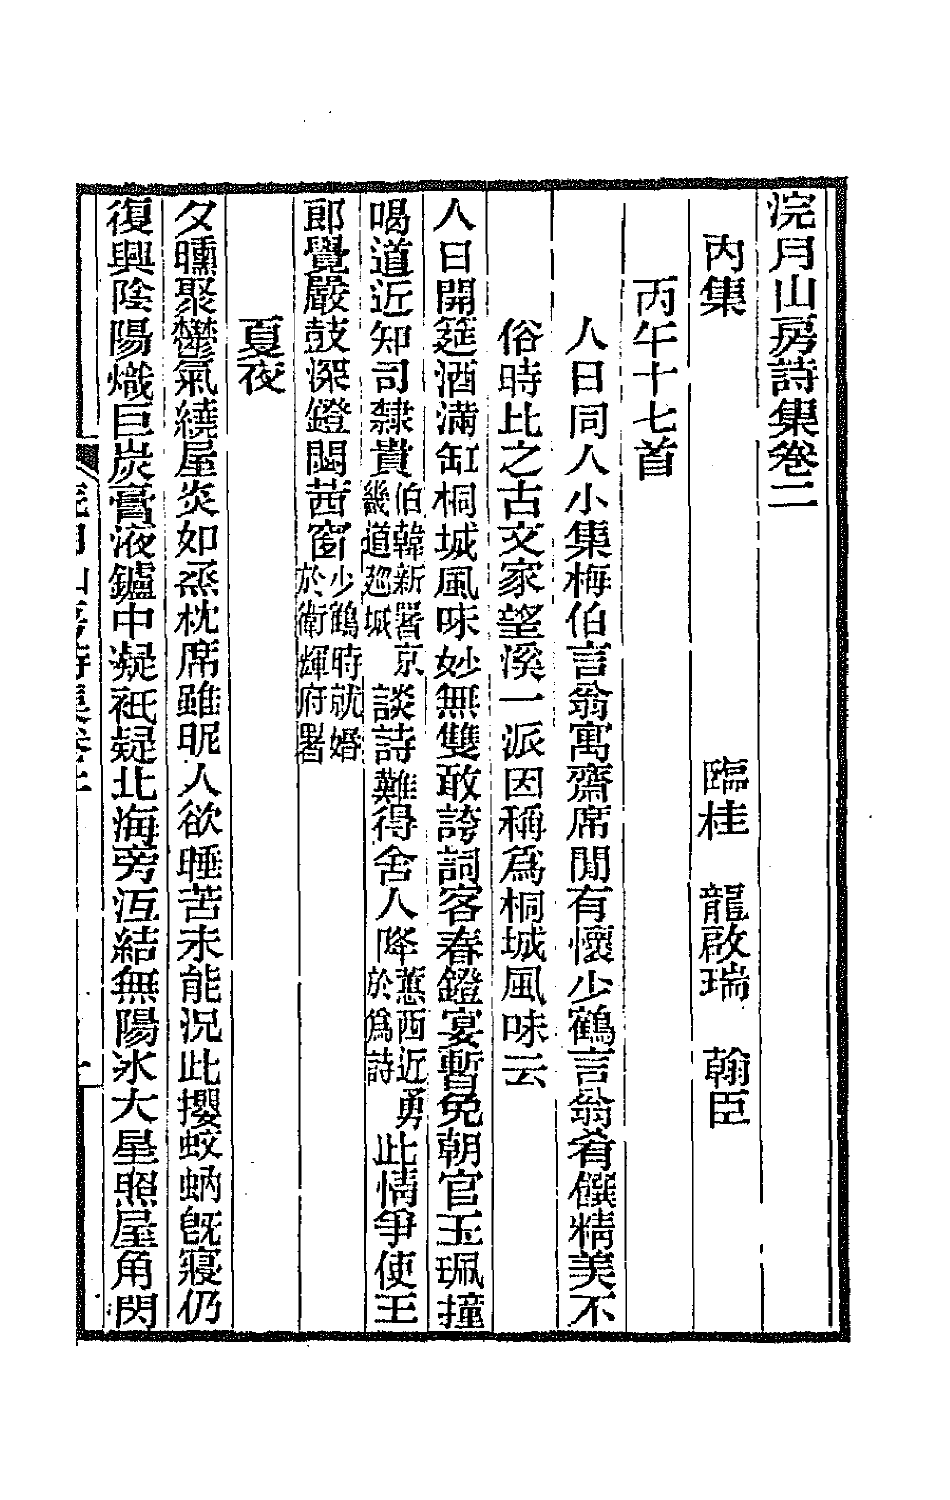 浣月山房詩集卷二
內集
臨桂　龍啟瑞　翰臣
丙午十七首
人日同人小集梅伯言翁寓齋席閒有懷少鶴言翁肴饌精美不
俗時比之古文家望溪一派因稱爲桐城風味云
人日開筵酒滿缸桐城風味妙無雙敢誇詞客春鐙宴暫免朝官玉珮撞
喝道近知司隸貴伯韓新署京畿道巡城談詩難得舍人降蕙西近勇於爲詩此情爭使王
郎覺嚴鼓深鐙閟茜窗少鶴時就婚於衛輝府署
夏夜
夕曛聚鬱氣繞屋炎如烝枕席雖昵人欲睡苦未能況此攖蚊蚋旣寢仍
復興陰陽熾巨炭膏液鑪中凝祇疑北海旁沍結無陽冰大星照屋角閃